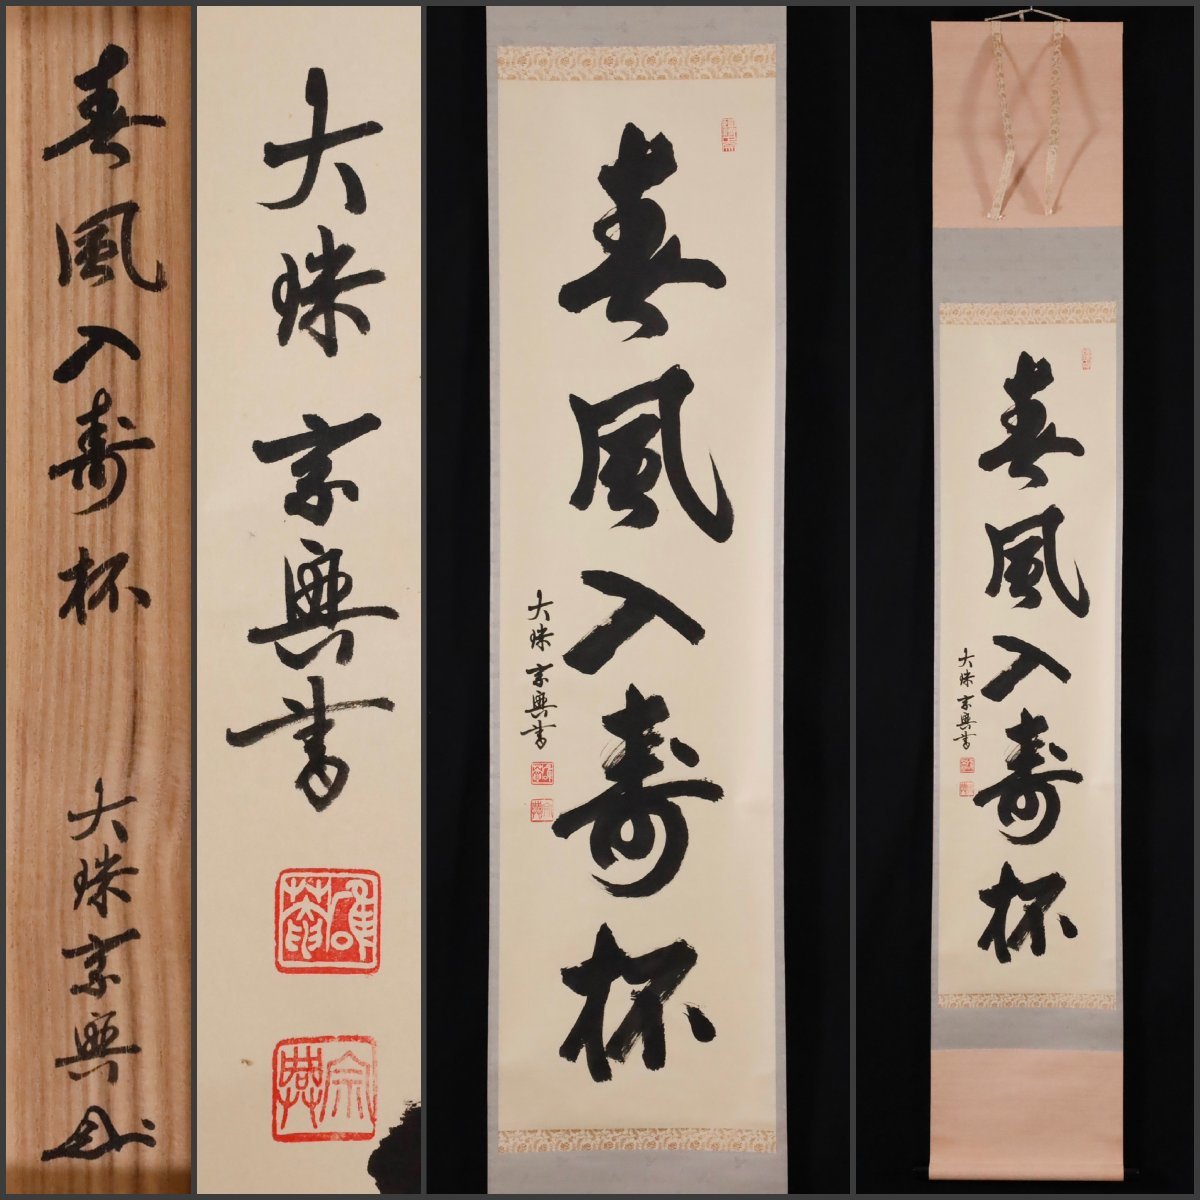 春風入寿杯
大珠宗興
大珠宗興書
宗興
春風入寿杯
大珠宗興書
春風入寿杯
大珠宗興書